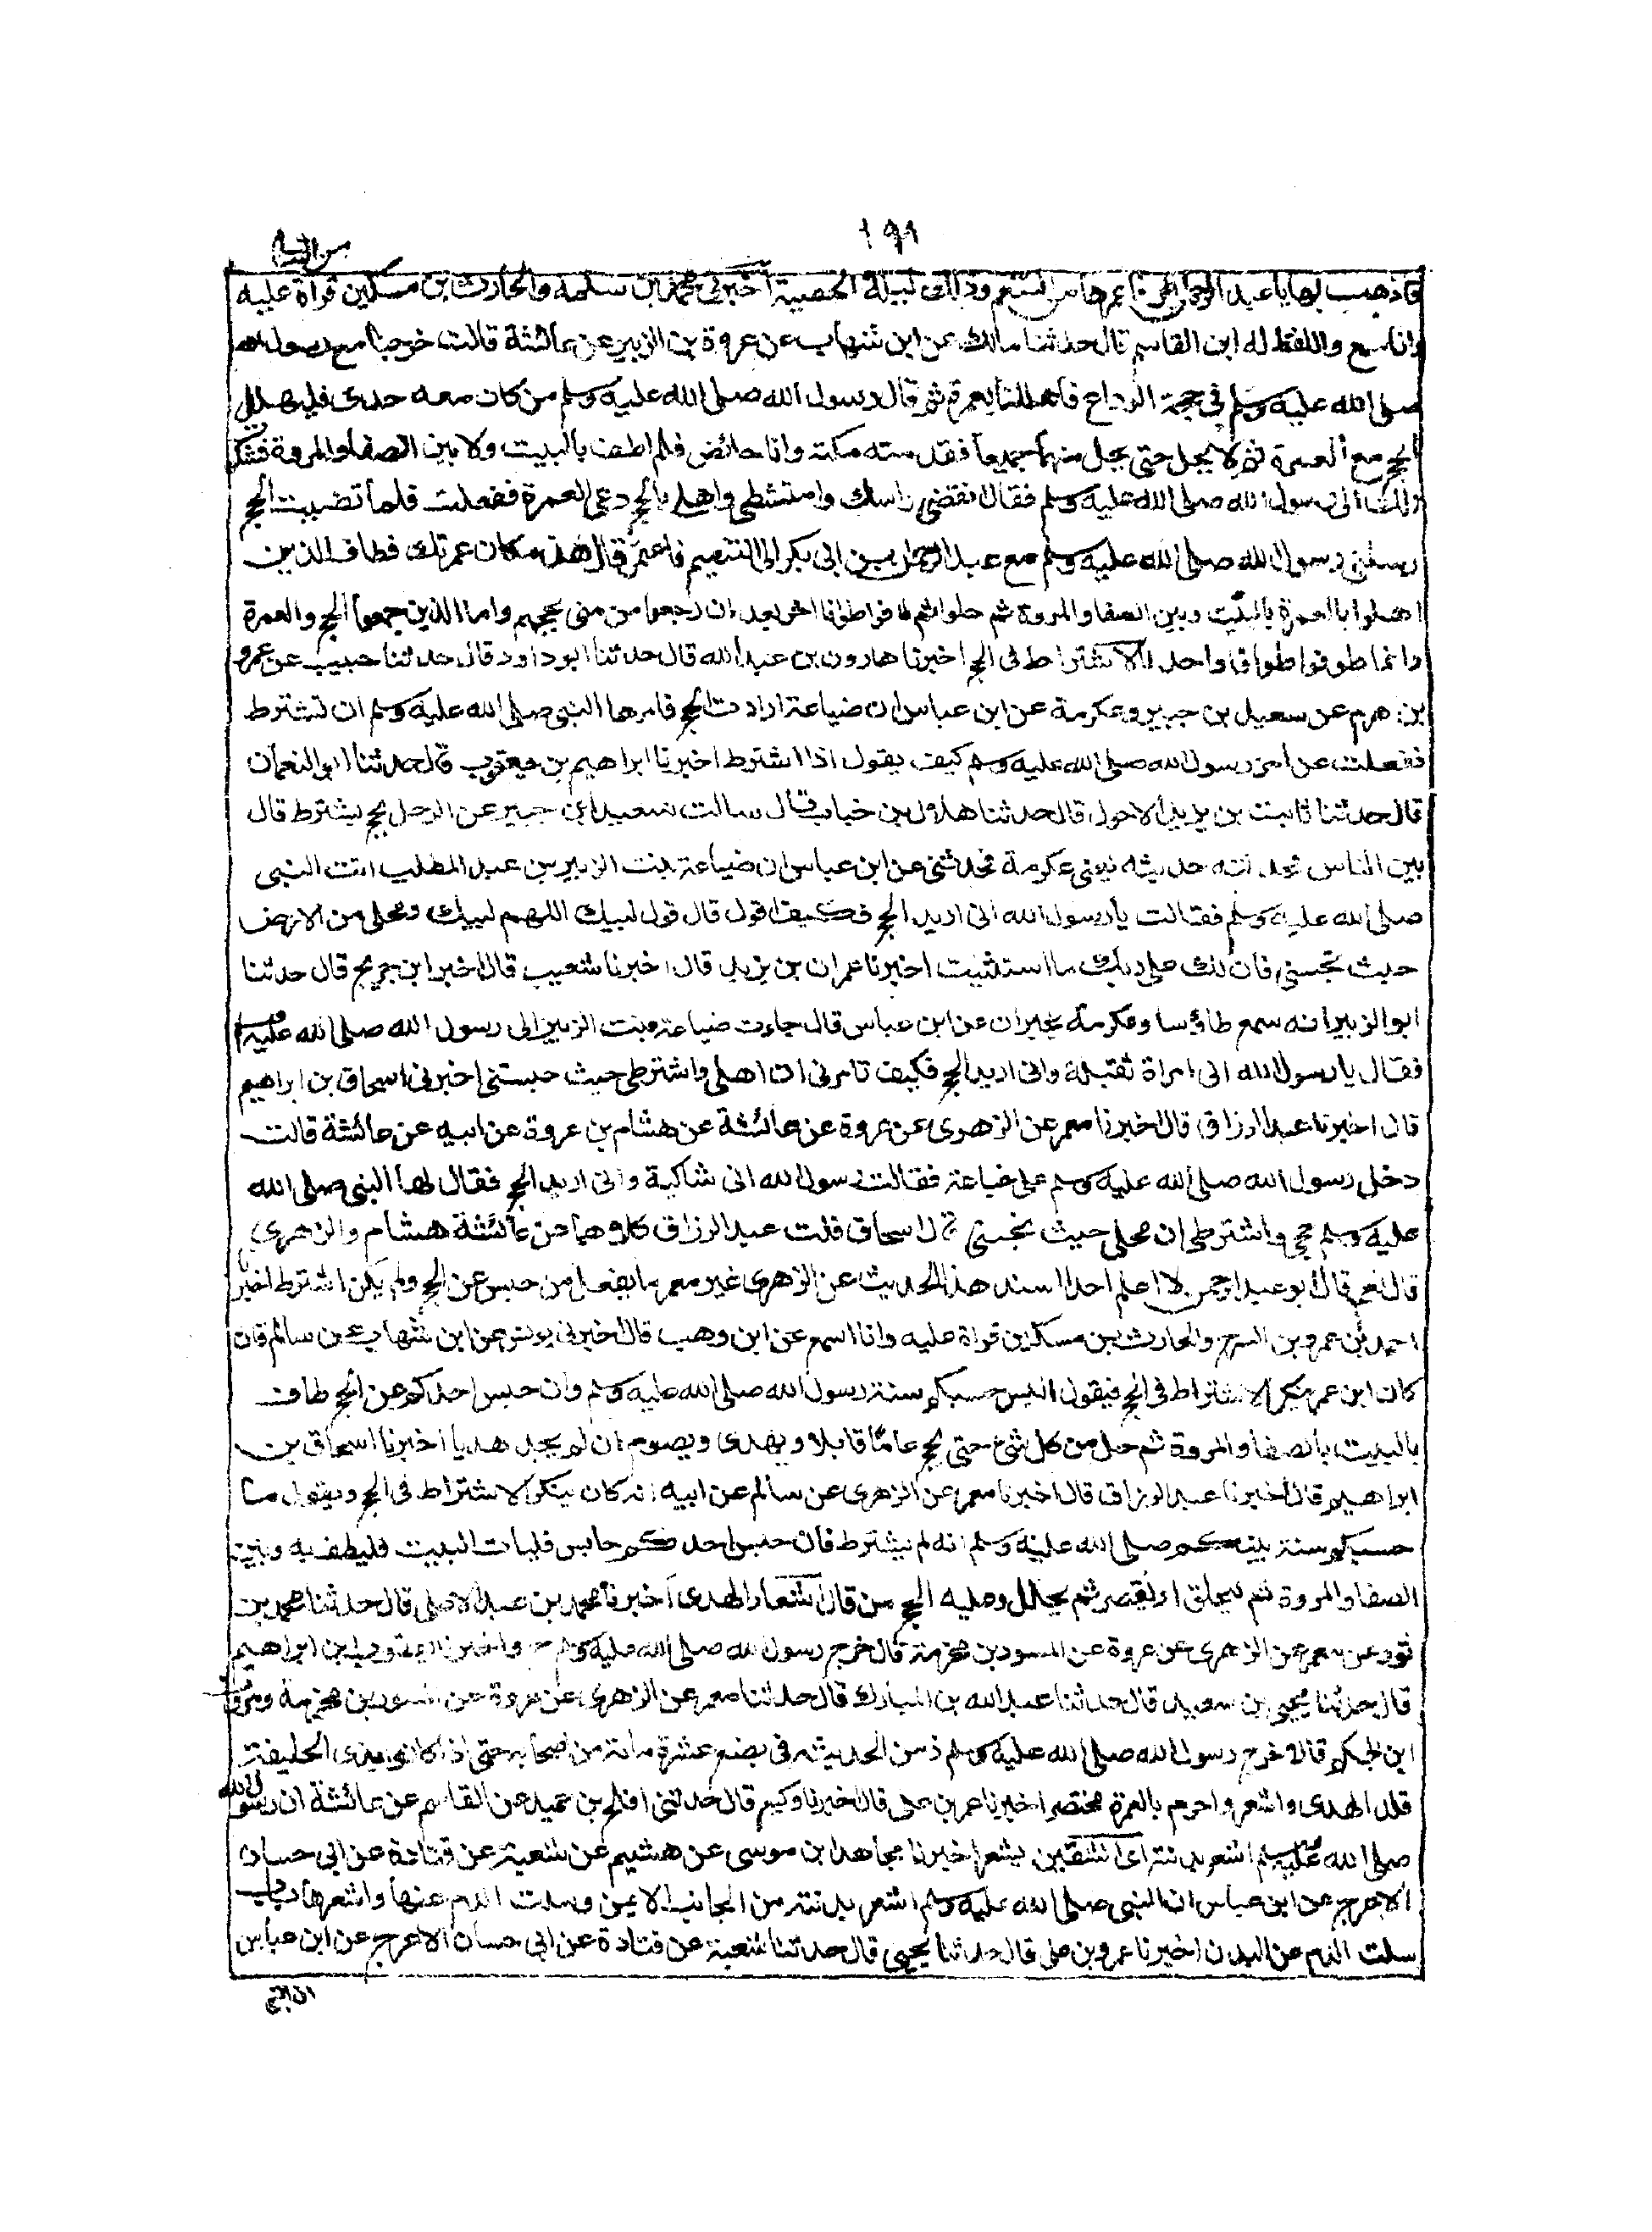 ١٩٩
فاذهب بها يا عبد الرحمن فاعمرها من التنعيم وذلك ليلة الحصبة اخبرني محمد بن سلمة والحارث بن مسكين قراة عليه
وانا اسمع واللفظ له ابن القاسم قال حدثنا مالك عن ابن شهاب عن عروة بن الزبير عن عائشة قالت خرجنا مع رسول الله
صلى الله عليه وسلم في حجة الوداع فاهللنا بعمرة ثم قال رسول الله صلى الله عليه وسلم من كان معه هدى فليهلل
الحج مع العمرة ثم لا يحل حتى يحل منهما جميعا فقدمته مكة وانا حائض فلم اطف بالبيت ولا بين الصفا والمروة فشكوت
ذلك الى رسول الله صلى الله عليه وسلم فقال انقضى راسك وامتشطى واهلى بالحج ودعى العمرة ففعلت فلما قضيت الحج
رسلني رسول الله صلى الله عليه وسلم مع عبد الرحمن بن ابى بكر الى التنعيم فاعتمر قال هذه مكان عمرتك فطاف الذين
اهلوا بالعمرة بالبيت وبين الصفا والمروة ثم حلوا ثم طافوا طوافا اخر بعد ان رجعوا من منى بحجهم واما الذين جمعوا الحج والعمرة
فانما طوفوا طوافا واحدا الاشتراط فى الحج اخبرنا هارون بن عبد الله قال حدثنا ابو داود قال حدثنا حبيب عن عمرو
بن هرم عن سعيد بن جبير وعكرمة عن ابن عباس ان ضباعة ارادت الحج فامرها النبى صلى الله عليه وسلم ان تشترط
ففعلت عن امر رسول الله صلى الله عليه وسلم كيف يقول اذا اشترط اخبرنا ابراهيم بن يعقوب قال حدثنا ابو النعمان
قال حدثنا ثابت بن يزيد الاحول قال حدثنا هلال بن خباب قال سالت سعيد ابن جبير عن الرجل يحج يشترط قال
بين الناس فحدثته حديثه يعنى عكرمة فحدثنى عن ابن عباس ان ضباعة بنت الزبير بن عبد المطلب اتت النبى
صلى الله عليه وسلم فقالت يا رسول الله انى اريد الحج فكيف اقول قال قولى لبيك اللهم لبيك ومحلى من الارض
حيث تحبسنى فان لك على ربك ما استثنيت اخبرنا عمران بن يزيد قال اخبرنا شعيب قال اخبر ابن جريج قال حدثنا
ابو الزبير انه سمع طاؤسا وعكرمة يخبران عن ابن عباس قال جاءت ضباعة بنت الزبير الى رسول الله صلى الله عليه وسلم
فقال يا رسول الله انى امراة ثقيلة وانى اريد الحج فكيف تامرنى ان اهلى واشترطى حيث حبستنى اخبرنى اسحاق بن ابراهيم
قال اخبرنا عبد الرزاق قال اخبرنا معمر عن الزهرى عن عروة عن عائشة عن هشام بن عروة عن ابيه عن عائشة قالت
دخل رسول الله صلى الله عليه وسلم على ضباعة فقالت رسول الله انى شاكية وانى اريد الحج فقال لها النبى صلى الله
عليه وسلم حجى واشترطى ان محلى حيث تحبسنى قال اسحاق قلت عبد الرزاق كلاهما عن عائشة هشام والزهرى
قال نعم قال ابو عبد الرحمن لا اعلم احدا اسند هذا الحديث عن الزهرى غير معمر ما يفعل من حبس عن الحج ولم يكن اشترط اخبرنا
احمد بن عمرو بن السرح والحارث بن مسكين قراة عليه وانا اسمع عن ابن وهب قال اخبرنى يونس عن ابن شهاب عن سالم قال
كان ابن عمر ينكر الاشتراط فى الحج فيقول اليس حسبكم سنة رسول الله صلى الله عليه وسلم وان حبس احدكم عن الحج طاف
بالبيت بالصفا والمروة ثم حل من كل شئ حتى يحج عامًا قابلا ويهدى ويصوم ان لم يجد هديا اخبرنا اسحاق بن
ابراهيم قال اخبرنا عبد الرزاق قال اخبرنا معمر عن الزهرى عن سالم عن ابيه انه كان ينكر الاشتراط فى الحج ويقول ما
حسبكم سنة نبيكم صلى الله عليه وسلم انه لم يشترط فان حبس احدكم حابس فليات البيت فليطف به وبين
الصفا والمروة ثم ليحلق او ليقصر ثم يحلل وعليه الحج من قابل اشعار الهدى اخبرنا محمد بن عبد الاعلى قال حدثنا محمد بن
ثور عن معمر عن الزهرى عن عروة عن المسور بن مخرمة قال خرج رسول الله صلى الله عليه وسلم ح واخبرنا يعقوب ابن ابراهيم
قال حدثنا يحيى بن سعيد قال حدثنا عبد الله بن المبارك قال حدثنا معمر عن الزهرى عن عروة عن المسور بن مخرمة ومروان
ابن الحكم قال خرج رسول الله صلى الله عليه وسلم زمن الحديبيه فى بضع عشرة مائة من اصحابه حتى اذا كانوا بذى الحليفة
قلد الهدى واشعر واحرم بالعمرة مختصر اخبرنا عمر بن على قال اخبرنا وكيع قال حدثنى افلح بن حميد عن القاسم عن عائشة ان رسول الله
صلى الله عليه وسلم اشعر بدنة اى الشقين يشعر اخبرنا مجاهد ابن موسى عن هشيم عن شعبة عن قتادة عن ابى حسان
الاعرج عن ابن عباس ان النبى صلى الله عليه وسلم اشعر بدنته من الجانب الايمن وسلت الدم عنها واشعرها باب
سلت الدم عن البدن اخبرنا عمرو بن على قال حدثنا يحيى قال حدثنا شعبة عن قتادة عن ابى حسان الاعرج عن ابن عباس
ان النبى